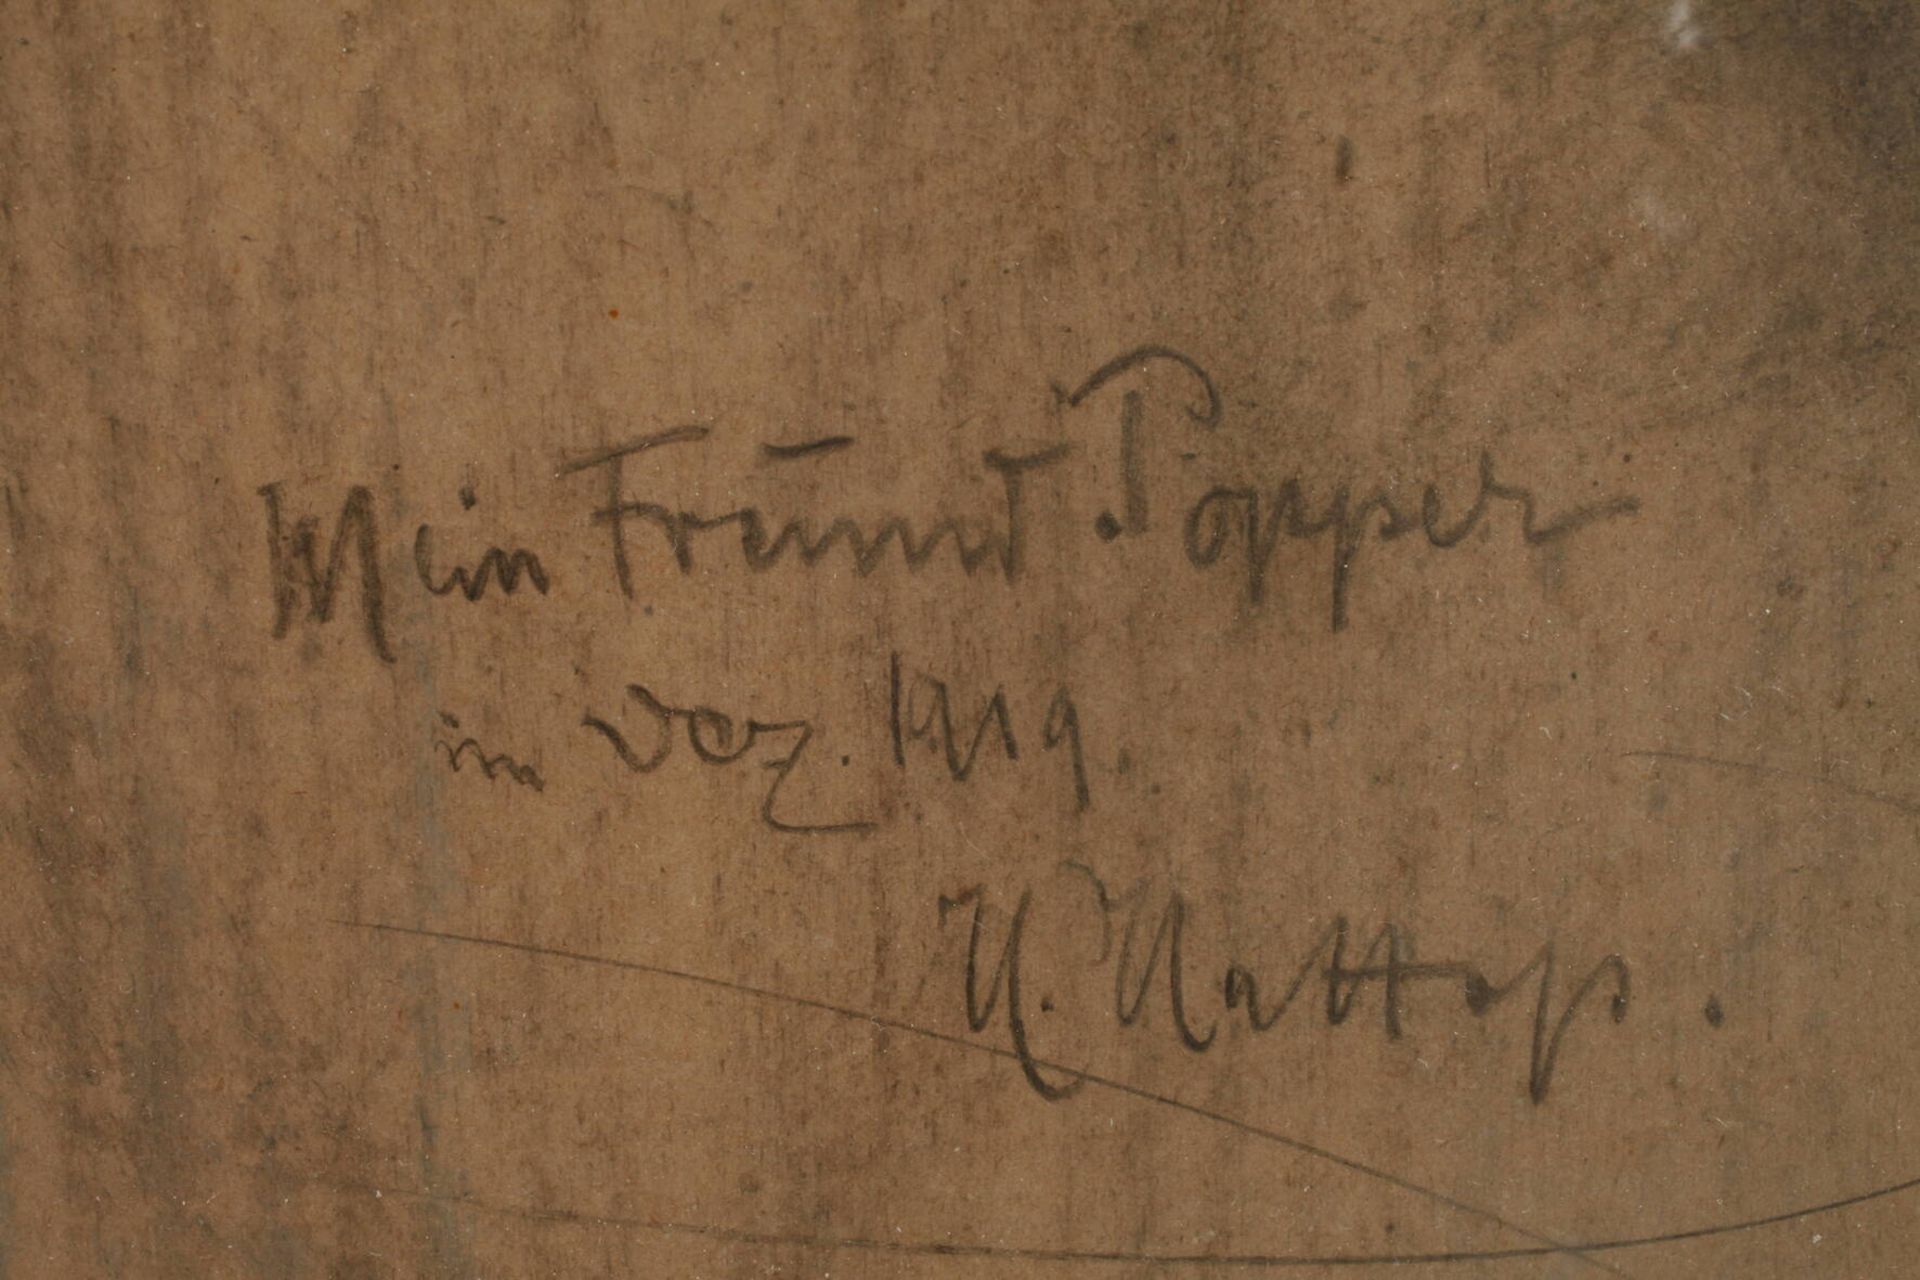 Mein Freund Popper
im Dez. 1919.